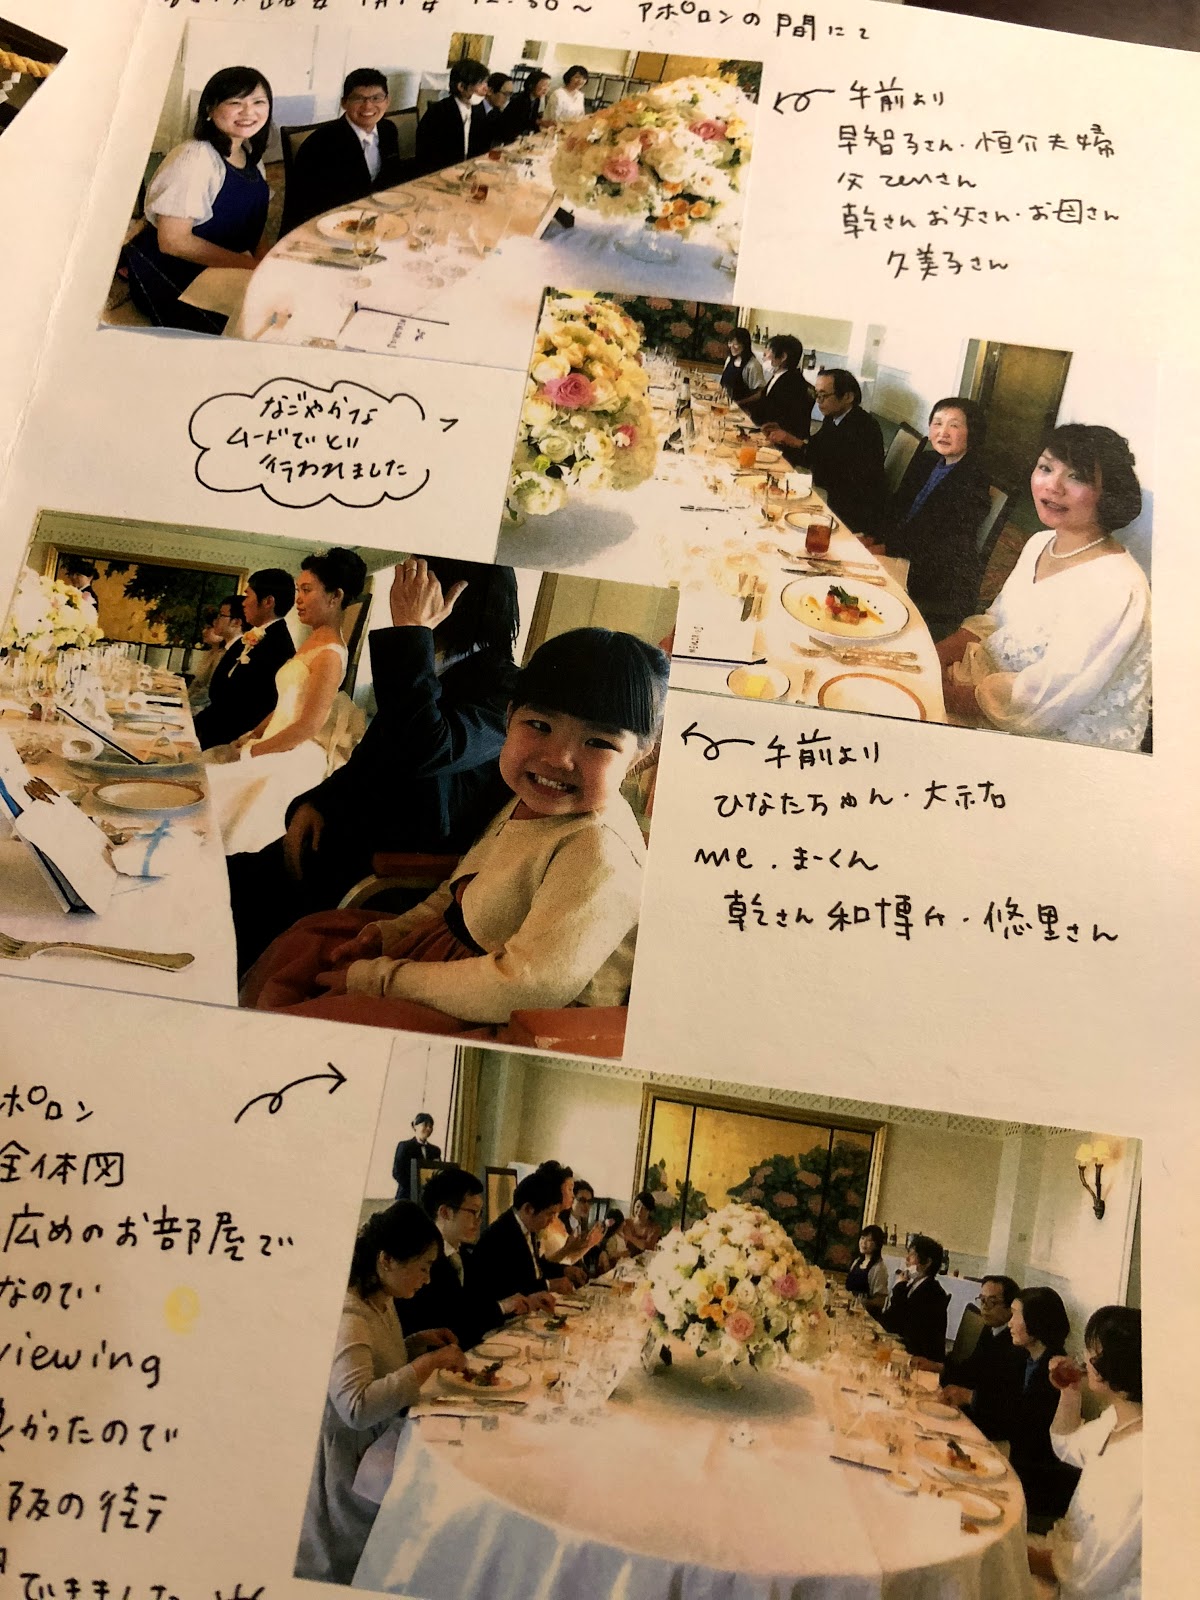 12:30〜 アポロンの間にて
午前より
早智子さん・恒介夫婦
父 zenさん
乾さんお父さん・お母さん
久美子さん
なごやかな
ムードで
行われました
午前より
ひなたちゃん・大祐
me.まーくん
乾さん和博片・悠里さん
ポロン
全体図
広めのお部屋で
なので
viewing
良かったので
阪の街
できました